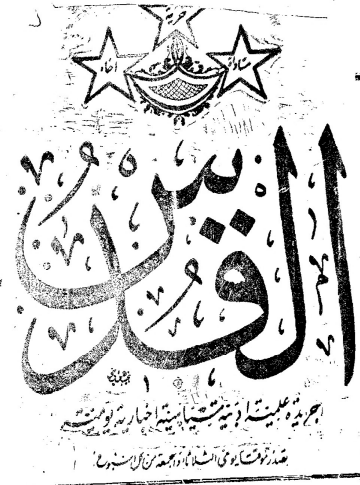 حرية
مساواة اخاء
القدس
جريدة علمية ادبية سياسية اخبارية يومية
تصدر موقتا يومي الثلاثاء والجمعة من كل اسبوع